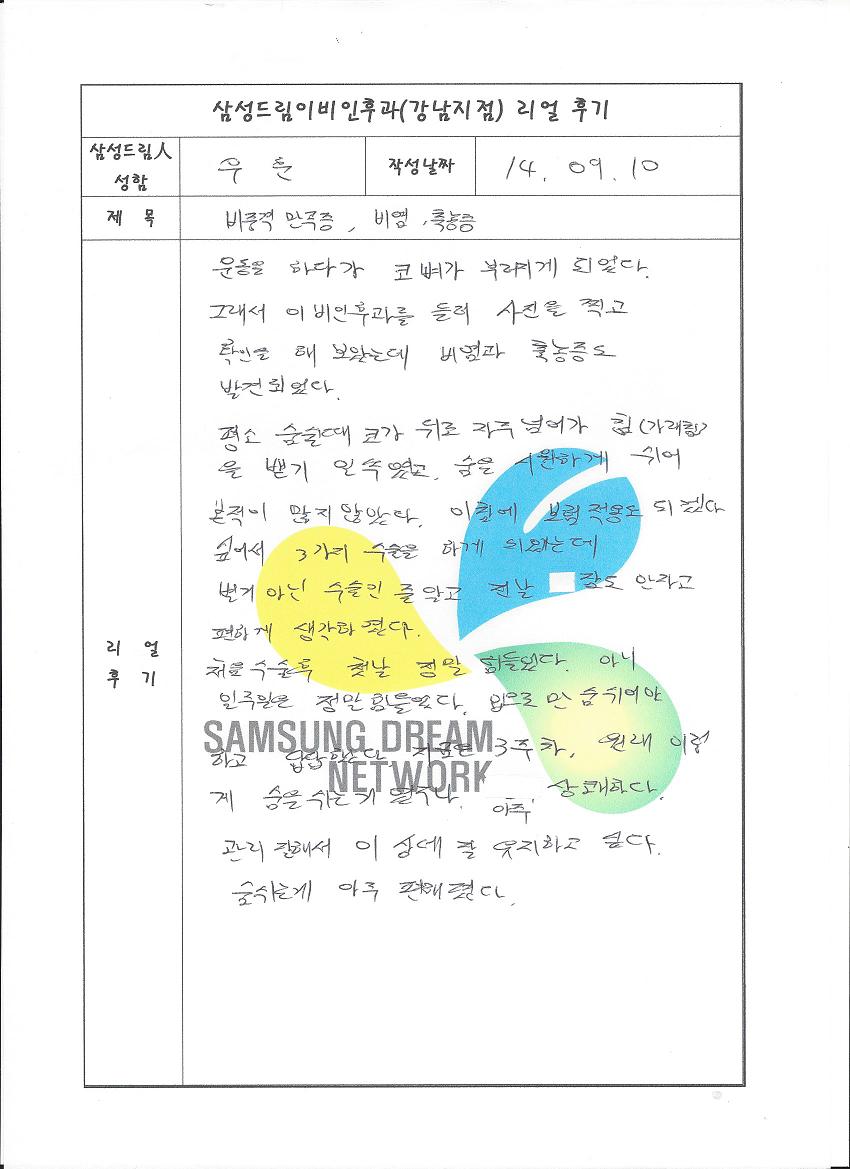 삼성드림이비인후과(강남지점) 리얼 후기
삼성드림人
성함
우 훈
작성날짜
14. 09. 10
제 목
비중격 만곡증, 비염, 축농증
리 얼
후 기
운동을 하다가 코뼈가 부러지게 되었다.
그래서 이비인후과를 들려 사진을 찍고
확인을 해 보았는데 비염과 축농증도
발견되었다.
평소 숨쉴때 코가 뒤로 자주 넘어가 침(가래침)
을 뱉기 일쑤였고, 숨을 시원하게 쉬어
본적이 많지 않았다. 이참에 보험적용도 되겠다
싶어서 3가지 수술을 하게 되었는데
별거 아닌 수술인 줄 알고 전날 잠도 안자고
편하게 생각하였다.
처음 수술후 첫날 정말 힘들었다. 아니
일주일은 정말 힘들었다. 입으로만 숨쉬어야
하고 답답했다. 지금은 3주차, 원래 이렇
게 숨을 쉬는거 였구나. 아주 상쾌하다.
관리 잘해서 이 상태 잘 유지하고 싶다.
숨쉬는게 아주 편해졌다.
SAMSUNG DREAM
NETWORK